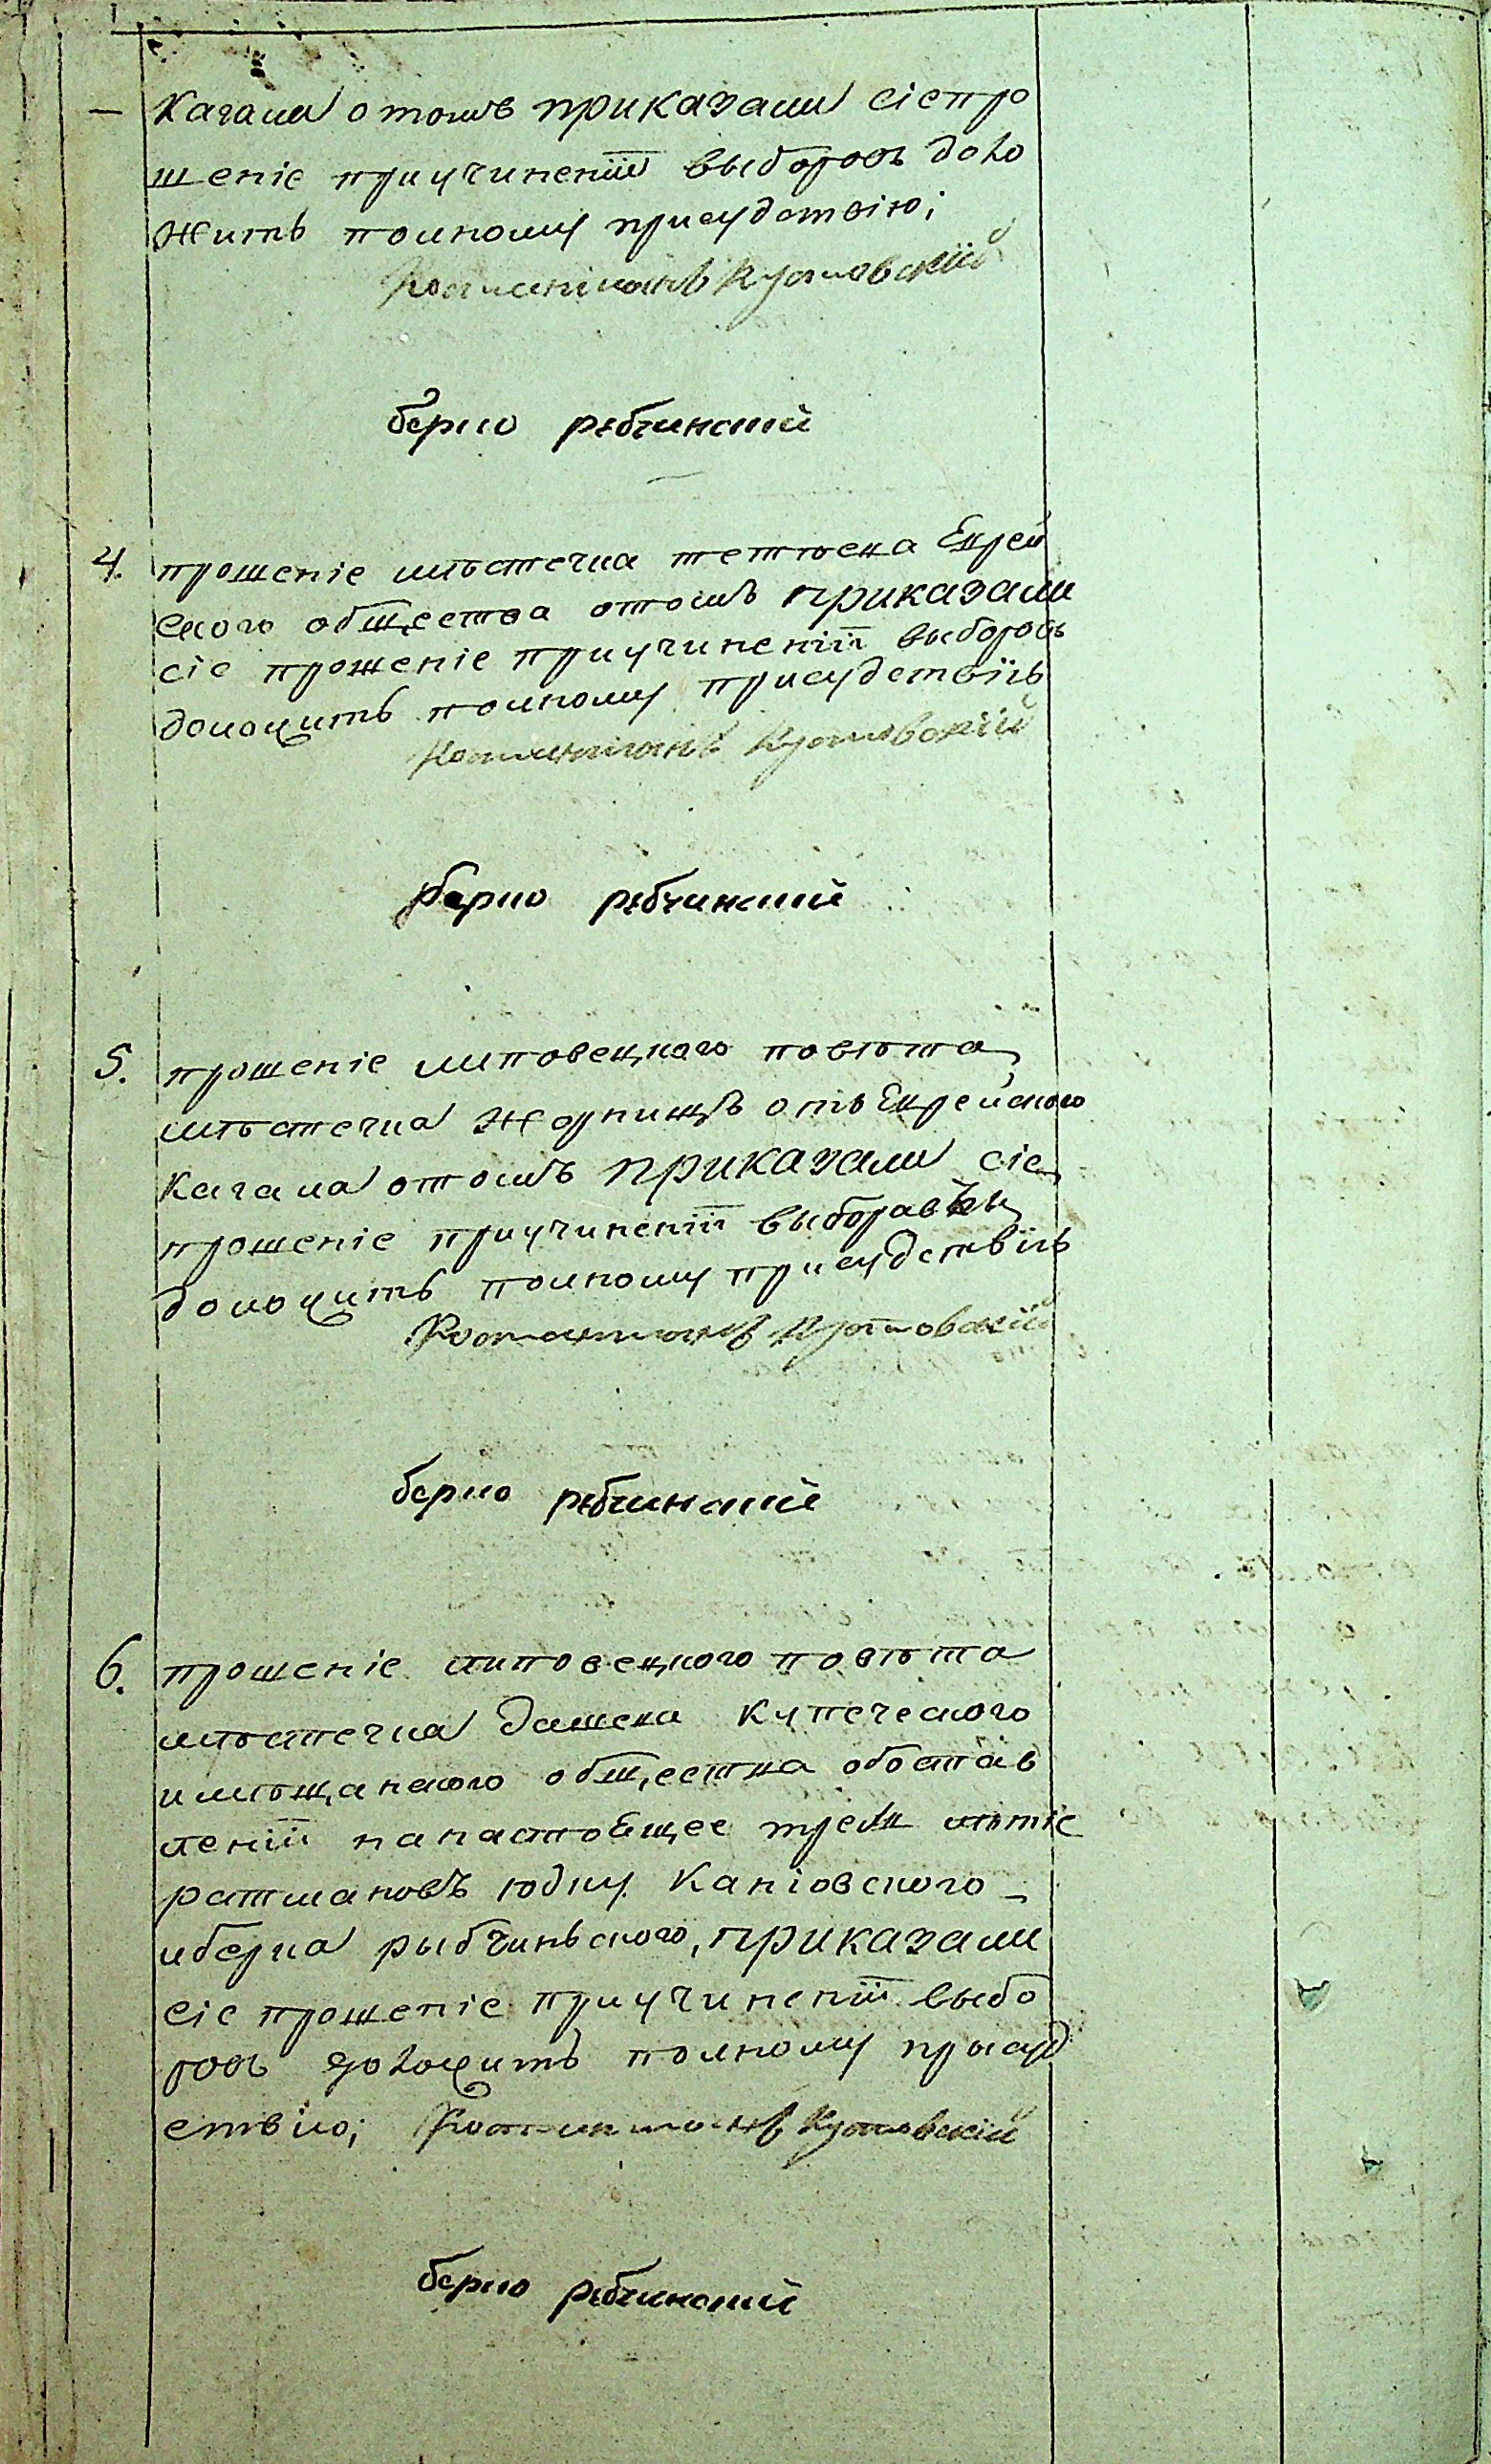 Кагала о томъ приказали сіе про
шеніе приучиненіи выборовъ доло
жить полному присудствію;
Константинъ Кутовскій
берко рыбчинский
4. прошеніе мѣстечка тетѣева Еврей
ского общества отомъ приказали
сіе прошеніе приучиненіи выборовъ
доложить полному присудствію
Константинъ Кутовскій
берко рыбчинский
5. прошеніе липовецкого повѣта
мѣстечка Жорнищъ отъ Еврейского
Кагала отомъ приказали сіе
прошеніе приучиненіи выборавъ
доложить полному присудствію
Константинъ Кутовскій
берко рыбчинский
6. прошеніе липовецкого повѣта
мѣстечка дашева Купеческого
имѣщанского общества обостав
леніи нанастоящее трех лѣтіе
ратмановъ юдку Каніовского
иберка рыбчинского, приказали
сіе прошеніе приучиненіи выбо
ровъ доложить полному присуд
ствію; Константинъ Кутовскій
берко рыбчинский